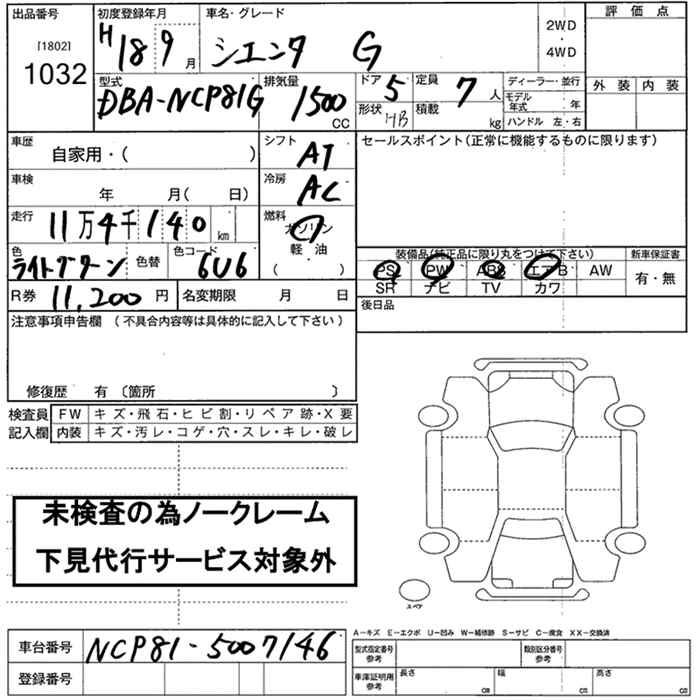 出品番号 初度登録年月 車名・グレード 評価点
[1802] H18 9月 シエンタ G 2WD・4WD
1032
型式 排気量 ドア 5 定員 7人 ディーラー・並行 外装 内装
DBA-NCP81G 1500 CC 形状 HB 積載 kg モデル年式 年
ハンドル 左・右
車歴 シフト セールスポイント(正常に機能するものに限ります)
自家用・( ) AT
車検 冷房
年 月( 日) AC
走行 11万4千140km 燃料
ガソリン
軽・油
( )
色 色替 色コード 装備品(純正品に限り丸をつけて下さい) 新車保証書
ライトグリーン 6U6 PS PW ABS エアB AW 有・無
SR ナビ TV カワ
R券 11,200円 名変期限 月 日 後日品
注意事項申告欄 (不具合内容等は具体的に記入して下さい)
修復歴 有 〔箇所 〕
検査員 FW キズ・飛石・ヒビ割・リペア跡・X要
記入欄 内装 キズ・汚レ・コゲ・穴・スレ・キレ・破レ
未検査の為ノークレーム
下見代行サービス対象外
スペア
A-キズ E-エクボ U-凹み W-補修跡 S-サビ C-腐食 XX-交換済
車台番号 NCP81-5007146 型式指定番号 参考 類別区分番号 参考
登録番号 車庫証明用 参考 長さ cm 幅 cm 高さ cm